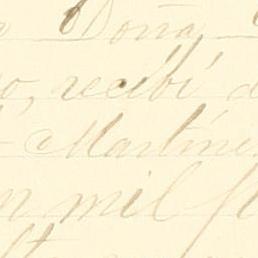 a Doña
o, recibí d
Martíne
n mil